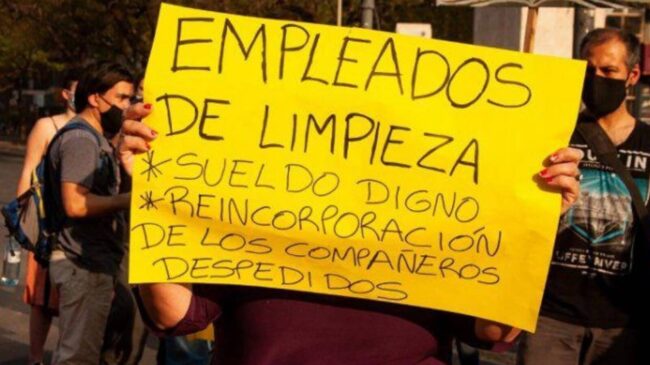 EMPLEADOS
DE LIMPIEZA
*SUELDO DIGNO
*REINCORPORACIÓN
DE LOS COMPAÑEROS
DESPEDIDOS